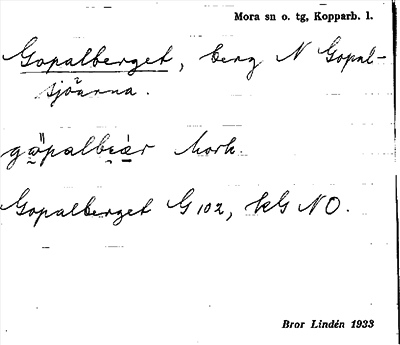 Mora sn o. tg, Kopparb. l.
Gopalberget, berg N Gopal-
sjöarna.
gö̤palbɛ̤a̤r Mork.
Gopalberget G 102, kG NO.
Bror Lindén 1933